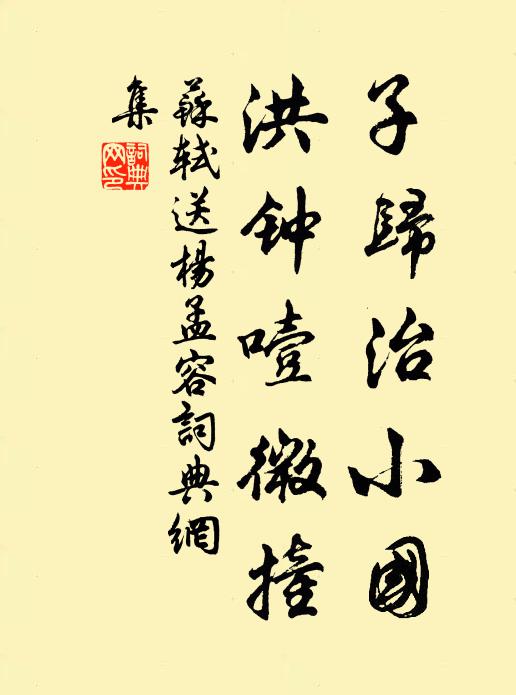 子歸治小國
洪钟噎微撞
蘇軾送楊孟容詞典網
集
詞典網印